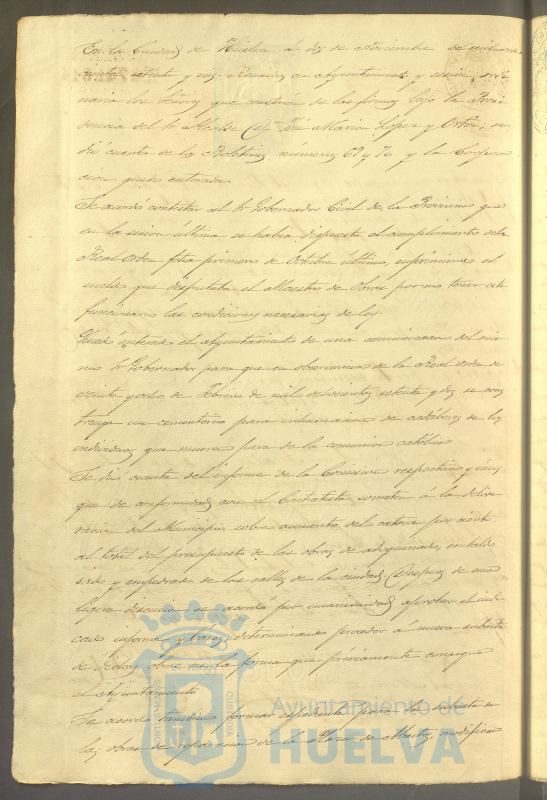 En la Ciudad de Huelva á diez de Noviembre de mil ocho-
cientos setenta y seis. Reunidos en Ayuntamiento y sesion ordi-
naria los Señores que constan de las firmas bajo la Presi-
dencia del Sr. Alcalde D. José Maria Lopez y Ortiz, se
dió cuenta de los Boletines números 69 y 70 y la Corpora-
cion quedó enterada.
Se acordó contestar al Sr. Gobernador Civil de la Provincia que
en la sesion última se habia dispuesto el cumplimiento de la
Real orden fecha primero de Octubre último, suprimiendo el
sueldo que disfrutaba el Maestro de Obras por no tener este
funcionario las condiciones necesarias de ley.
Quedó enterado el Ayuntamiento de una comunicacion del mis-
mo Sr. Gobernador para que en observancia de la Real orden de
veinte y ocho de Febrero de mil ochocientos setenta y dos se cons-
truya un cementerio para inhumacion de cadáveres de los
individuos que mueran fuera de la comunion católica
Se dió cuenta del informe de la Comision respectiva y
que de conformidad con el Contratista somete á la delibe-
racion del Municipio sobre aumento del catorce por ciento
al total del presupuesto de las obras de adoquinado, enlosa-
do y empedrado de las calles de la ciudad. Despues de una
ligera discusion se acordó por unanimidad aprobar el indi-
cado informe y determinaron proceder á nueva subasta
de dichas obras en la forma que préviamente consigne
el Ayuntamiento
Se acordó tambien formar espediente para la subasta de
las obras de reparacion de la Plaza de Abastos, modifica
PORTUS MARIS
CUSTODIA
Ayuntamiento de
HUELVA